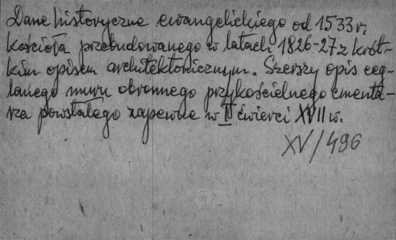 Dane historyczne ewangelickiego od 1533 r.
kościoła przebudowanego w latach 1826-27 z krót-
kim opisem architektonicznym. Szerszy opis ceg-
lanego muru obronnego przykościelnego cmenta-
rza powstałego zapewne w II ćwierci XVII w.
XV/496